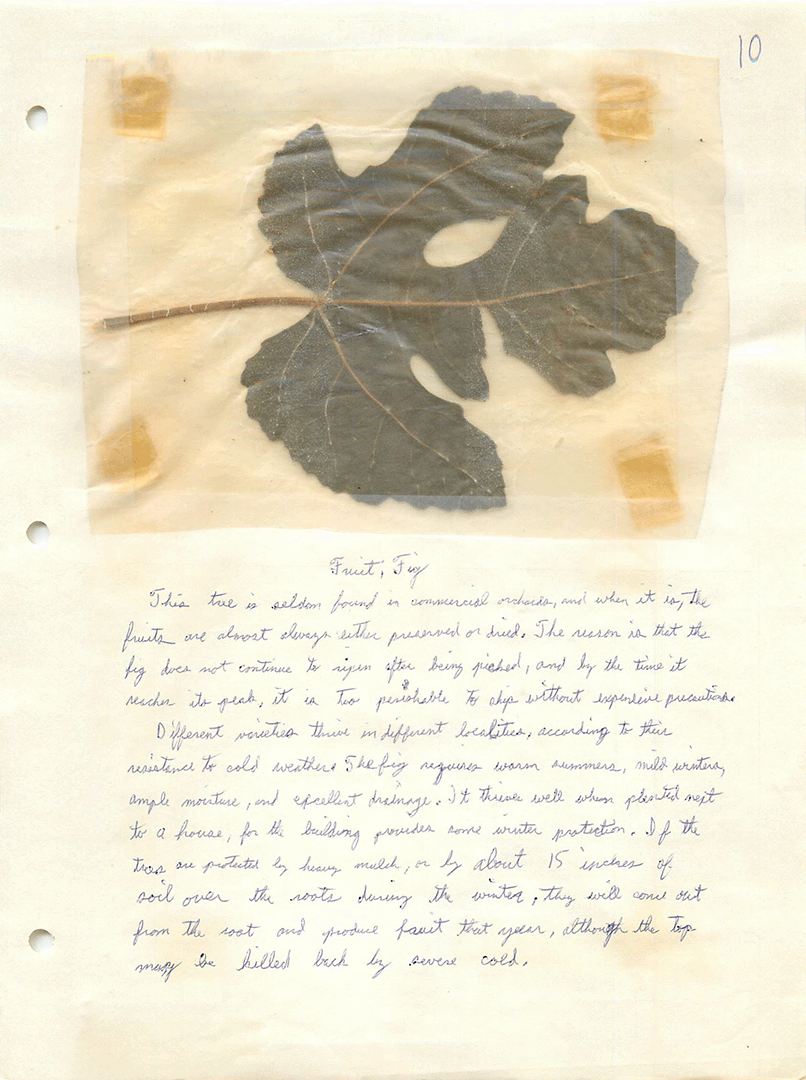 10
Fruit, Fig
This tree is seldom found in commercial orchards, and when it is, the
fruits are almost always either preserved or dried. The reason is that the
fig does not continue to ripen after being picked, and by the time it
reaches its peak, it is too perishable to ship without expensive precautions.
Different varieties thrive in different localities, according to their
resistance to cold weather. The fig requires warm summers, mild winters,
ample moisture, and excellent drainage. It thrives well when planted next
to a house, for the building provides some winter protection. If the
trees are protected by heavy mulch, or by about 15 inches of
soil over the roots during the winter, they will come out
from the root and produce fruit that year, although the top
may be killed back by severe cold.